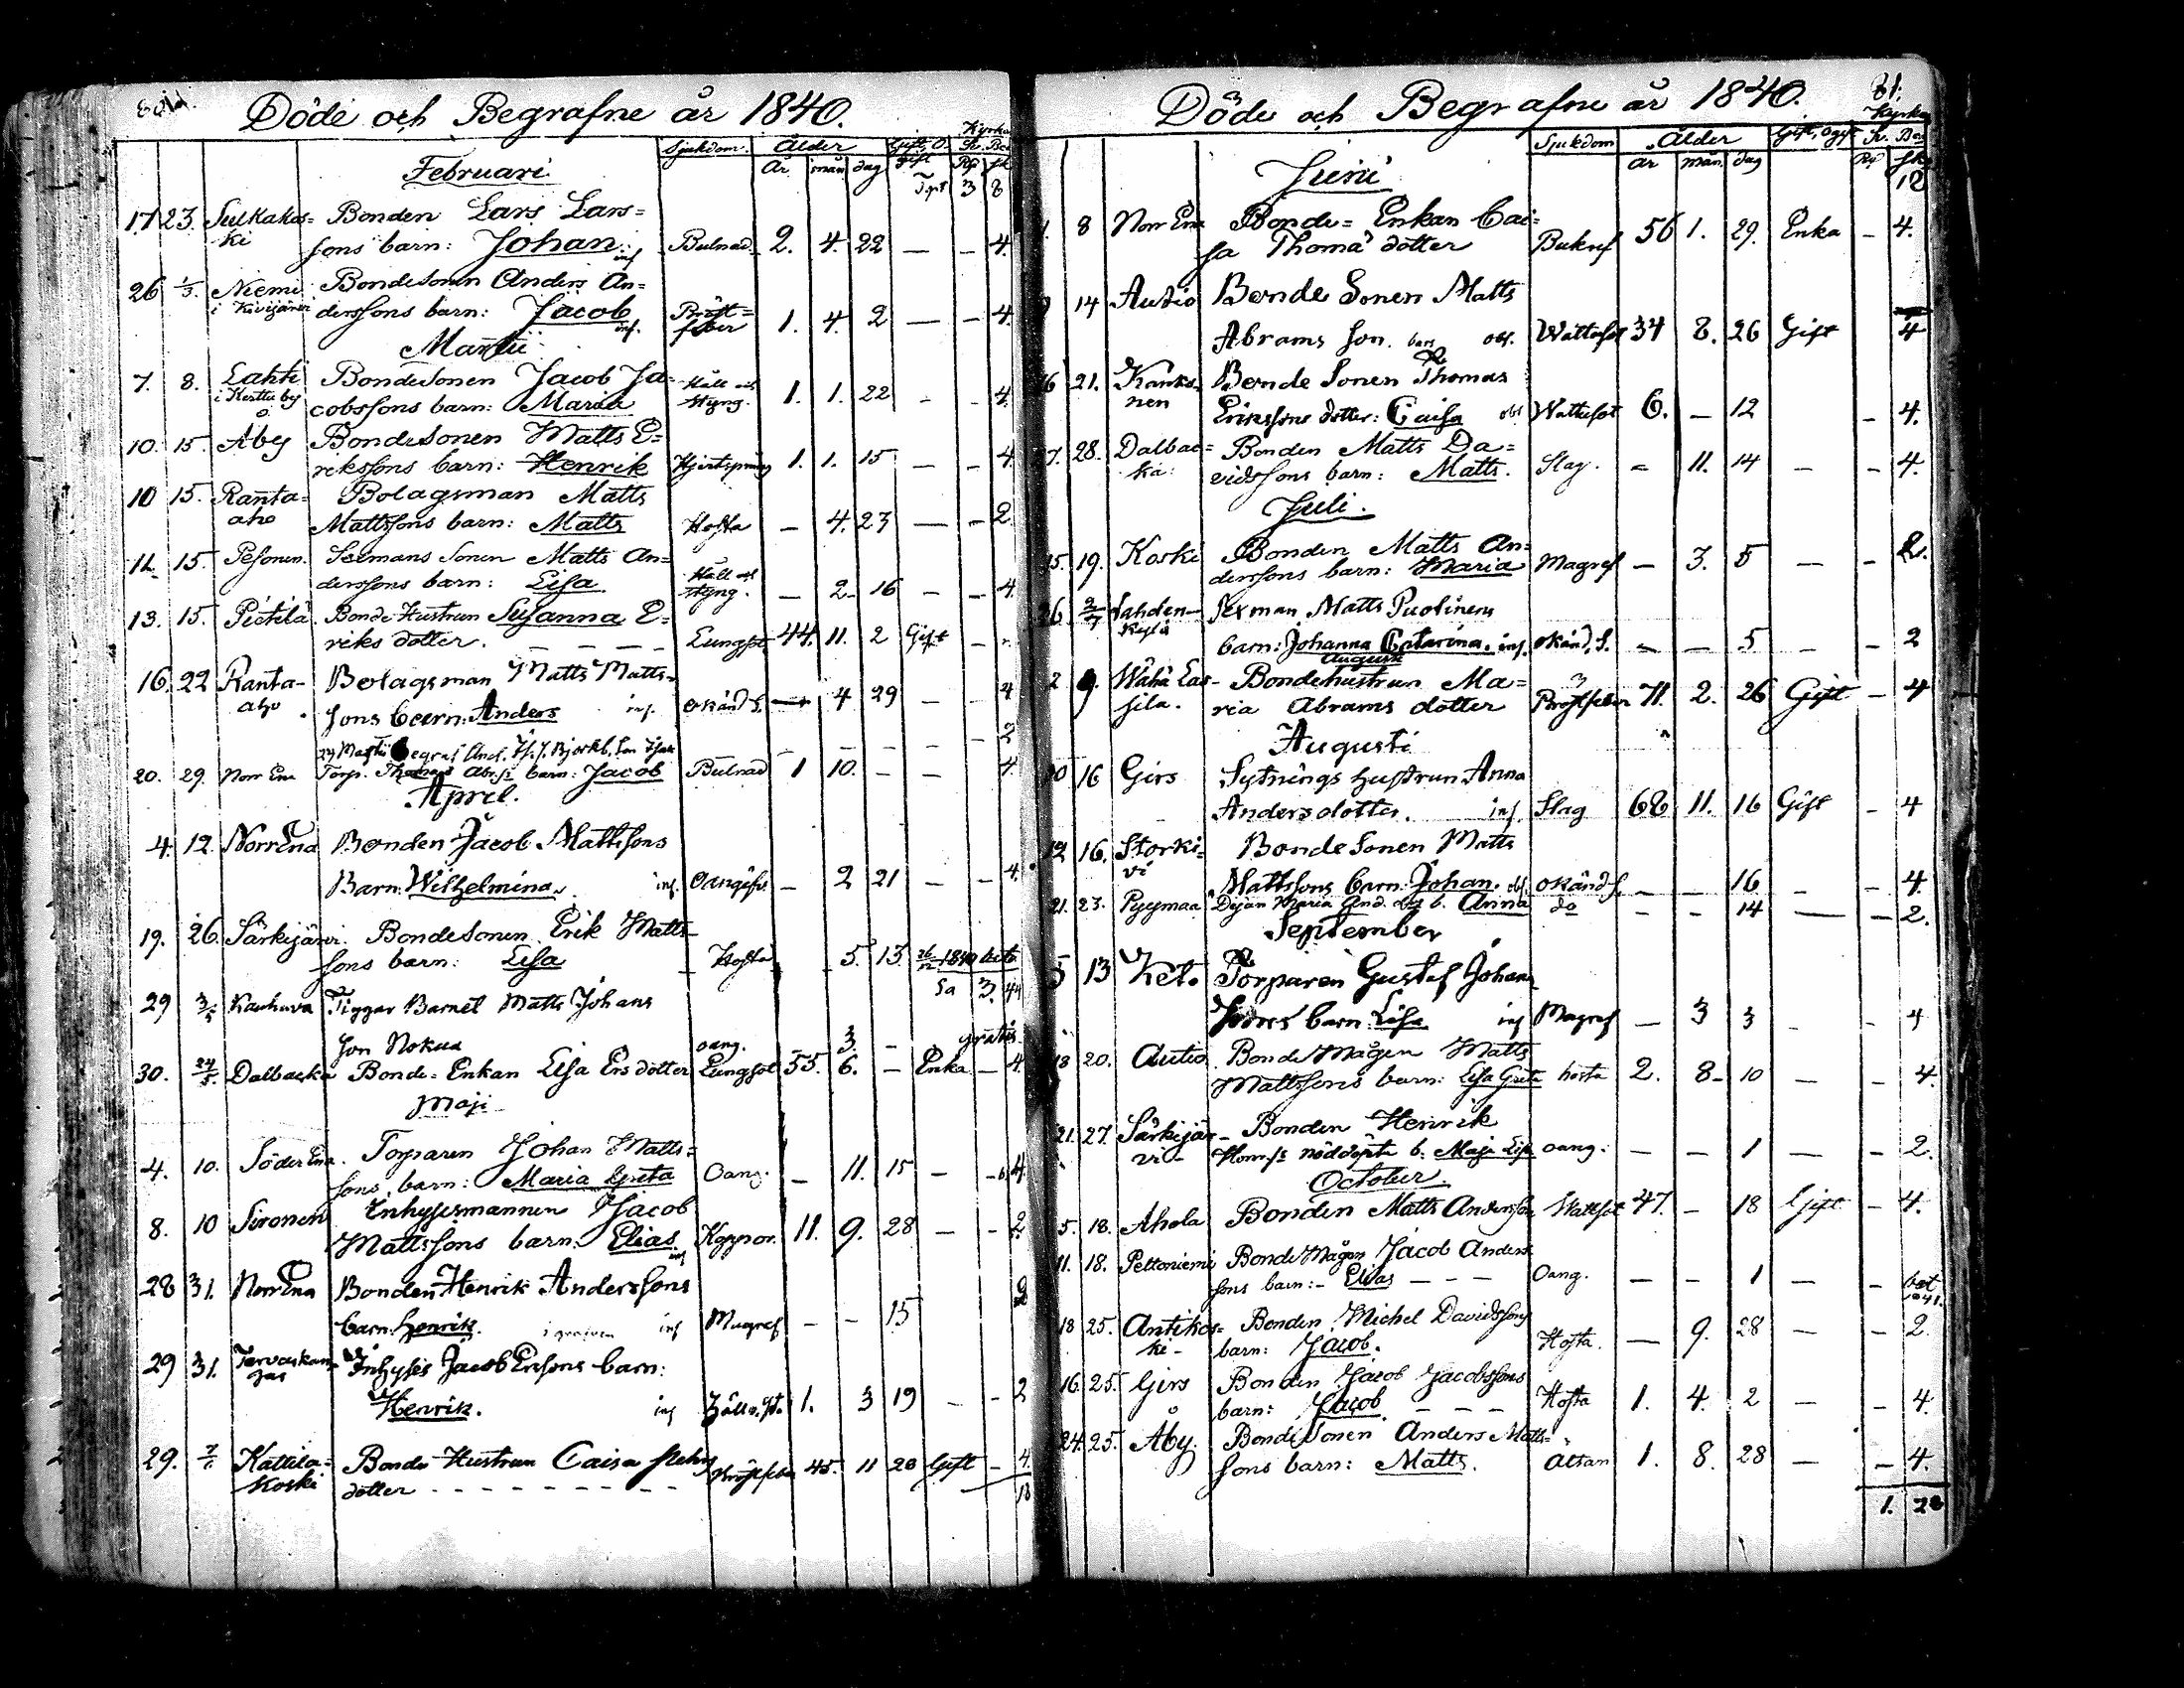 Döde och Begrafne år 1840.
Kyrko
Sjukdom. Ålder Gift, O- Sv. Bco
År mån dag gift Rp sk
Februari
Tspt 3 8
17 23. Sulkakos= Bonden Lars Lars=
ki sons barn: Johan. inf Bulnad 2. 4. 22 — — 4.
26 1/3. Niemi Bondesonen Anders An=
i Kivijärvi derssons barn: Jacob inf. Bröst=
feber 1. 4. 2 — — 4.
Martii
7. 8. Lahti Bondesonen Jacob Ja= Håll och
i Kerttu by cobssons barn: Maria styng. 1. 1. 22 - - 4.
10. 15. Åby Bondesonen Matts E=
rikssons barn: Henrik Hjertspring 1. 1. 15 — - 4.
10 15. Ranta= Bolagsman Matts
aho Mattssons barn: Matts Hosta — 4. 23 — - 2.
11. 15. Pesonen. Sexmans Sonen Matts An= Håll och
derssons barn: Lisa styng. — 2 16 — - 4.
13. 15. Pietilä. Bonde Hustrun Susanna E=
riks dotter. Lungsot 44. 11. 2 Gift -
16. 22 Ranta- Bolagsman Matts Matts-
aho sons barn: Anders inf. okänd S. — 4 29 — - 4
2
20. 29. Norr Ena Torp. Thomas Abr.ss barn: Jacob Bulnad 1 10. — — 4.
April.
4. 12. Norr Ena Bonden Jacob Mattssons
Barn: Wilhelmina. inf. Oangifv. — 2 21 — - 4.
19. 26. Särkijärvi. Bondesonen Erik Matts-
sons barn: Lisa Hosta 5. 13 26/12 1840 bet.
Sa 3. 44
29 3/5 Kauhava Tiggar Barnet Matts Johans
son Nokua oang. 3. — gratis
30. 24/5. Dalbacka Bonde= Enkan Lisa Ers dotter Lungsot 55. 6. — Enka — 4.
Maji
4. 10. Söder Ena. Torparen Johan Matts=
sons barn: Maria Greta Oang. — 11. 15 — - 4.
8. 10 Sironen Inhysesmannen Jacob
Mattssons barn: Elias inf Koppor. 11. 9. 28 — - 2.
28 31. Norr Ena Bonden Henrik Anderssons 2
barn: Henrik. inf Magref — — 15
29 31. Tervaskan- Inhyses Jacob Erssons barn:
gas Henrik. inf Håll o. st. 1. 3 19 — - 2
29. 7/6 Kattila= Bonde Hustrun Caisa
Koski dotter Bröstfeber 45. 11 28 Gift - 4.
18
Döde och Begrafne år 1840. 81.
Kyrko
Sjukdom Ålder Gift, ogift Sv. Bco
år mån. dag Rp sk
Junii 18
1. 8 Norr Ena Bonde= Enkan Cai=
sa Thomä dotter Bukref 56 1. 29. Enka — 4.
14 Autio Bonde Sonen Matts
Abrams son. obs. Wattusot 34 8. 26 Gift 4
16 21. Känks- Bonde Sonen Thomas
nen Erikssons dotter: Caisa obs Wattusot 6. — 12 - 4.
27. 28. Dalbac= Bonden Matts Da=
ka: vidssons barn: Matts. Slag. — 11. 14 — - 4.
Juli.
15. 19. Koski Bonden Matts An=
derssons barn: Maria Magref — 3. 5 — - 2.
26 2/7 Lahden- Sexman Matts Puolinens
kylä barn: Johanna Catarina. inf. okänd. S. — — 5 - - 2
Augusti
2 9. Wähä Las- Bondehustrun Ma=
sila. ria Abrams dotter Bröstfeber 71. 2. 26 Gift — 4
Augusti
10 16 Girs Sytnings hustrun Anna
Anders dotter. inf. Slag 68 11. 16 Gift - 4
12 16. Storki= Bonde Sonen Matts
vi Mattssons barn: Johan. obs. okänd S. — — 16 - - 4.
21. 23. Pyymaa Dejan Maria And. dot. b. Anna do - - 14 — - 2.
September
5 13 Keto Torparen Gustaf Johans
sons barn Lisa inf Magref — 3 3 - - 4
18 20. Autio Bonde Mågen Matts
Mattssons barn: Lisa Greta hosta 2. 8- 10 — - 4.
21. 27. Särkijär- Bonden Henrik
vi- Hom.ss nöddöpta b: Maja Lisa oang: — — 1 — - 2.
October.
5. 18. Ahola Bonden Matts Andersson Wattsot 47. — 18 Gift - 4.
11. 18. Peltoniemi Bonde Mågen Jacob Anders
sons barn:- Elias — — — Oang. — — 1 — - bet
18 25. Antikos= Bonden Michel Davidssons
ki- barn: Jacob. Hosta. — 9. 28 — - 2.
16. 25. Girs Bonden Jacob Jacobssons
barn: Jacob. — — — Hosta 1. 4. 2 — - 4.
24. 25. Åby. Bonde Sonen Anders Matts=
sons barn: Matts. Ältan 1. 8. 28 — - 4.
1. 28